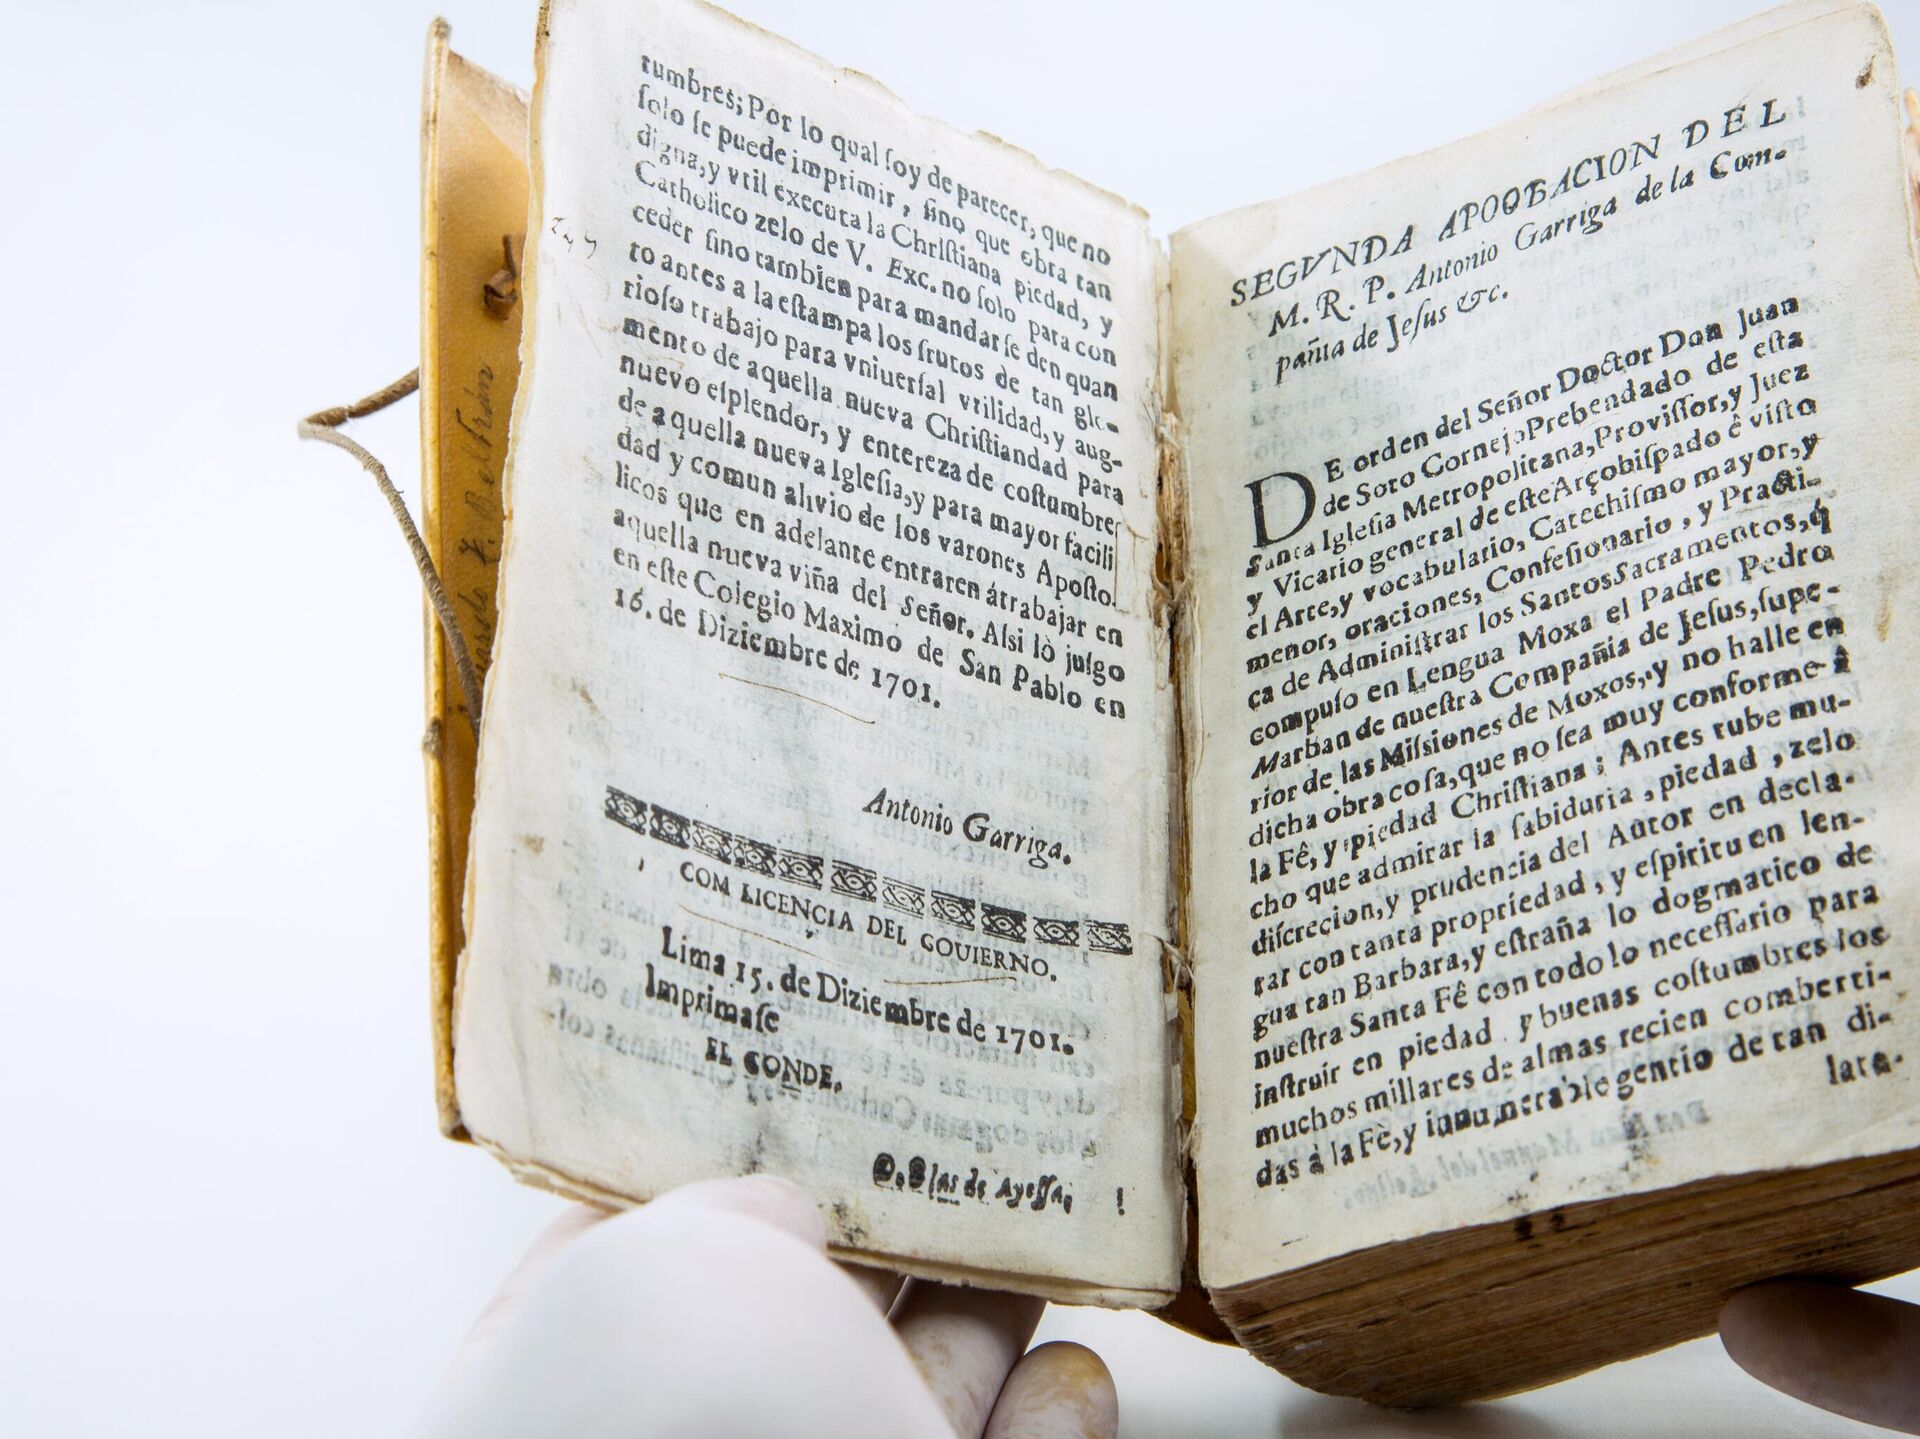 tumbres; Por lo qual ſoy de parecer, que no
ſolo ſe puede imprimir, ſino que obra tan
digna, y vtil executa la Chriſtiana piedad, y
Catholico zelo de V. Exc. no ſolo para con
ceder ſino tambien para mandar ſe den quan
to antes a la eſtampa los frutos de tan glo-
rioſo trabajo para vniuerſal vtilidad, y aug-
mento de aquella nueva Chriſtiandad para
nuevo eſplendor, y entereza de coſtumbres
de aquella nueva Igleſia, y para mayor facili
dad y comun alivio de los varones Apoſto.
licos que en adelante entraren átrabajar en
aquella nueva viña del Señor. Aſsi lò juſgo
en eſte Colegio Maximo de San Pablo en
16. de Diziembre de 1701.
Antonio Garriga.
COM LICENCIA DEL GOUIERNO.
Lima 15. de Diziembre de 1701.
Imprimaſe
EL CONDE.
D. Blas de Ayeſſa,
SEGVNDA APOOBACION DEL
M. R. P. Antonio Garriga de la Com-
pañia de Jeſus &c.
DE orden del Señor Doctor Don Juan
de Soto Cornejo Prebendado de eſta
Santa Igleſia Metropolitana, Proviſſor, y Juez
y Vicario general de eſte Arçobiſpado ê viſto
el Arte, y vocabulario, Catechiſmo mayor, y
menor, oraciones, Confeſionario, y Practi-
ca de Adminiſtrar los Santos Sacramentos, q̃
compuſo en Lengua Moxa el Padre Pedro
Marban de nueſtra Compañia de Jeſus, ſupe-
rior de las Miſsiones de Moxos, y no halle en
dicha obra coſa, que no ſea muy conforme â
la Fê, y piedad Chriſtiana; Antes tube mu-
cho que admirar la ſabiduria, piedad, zelo
diſcrecion, y prudencia del Autor en decla-
rar con tanta propriedad, y eſpiritu en len-
gua tan Barbara, y eſtraña lo dogmatico de
nueſtra Santa Fê con todo lo neceſſario para
inſtruir en piedad y buenas coſtumbres los
muchos millares de almas recien comberti-
das à la Fè, y innumerable gentio de tan di-
lata-
Beltrán